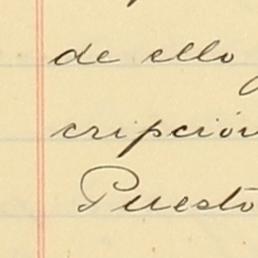 de ello
cripción
Puesto